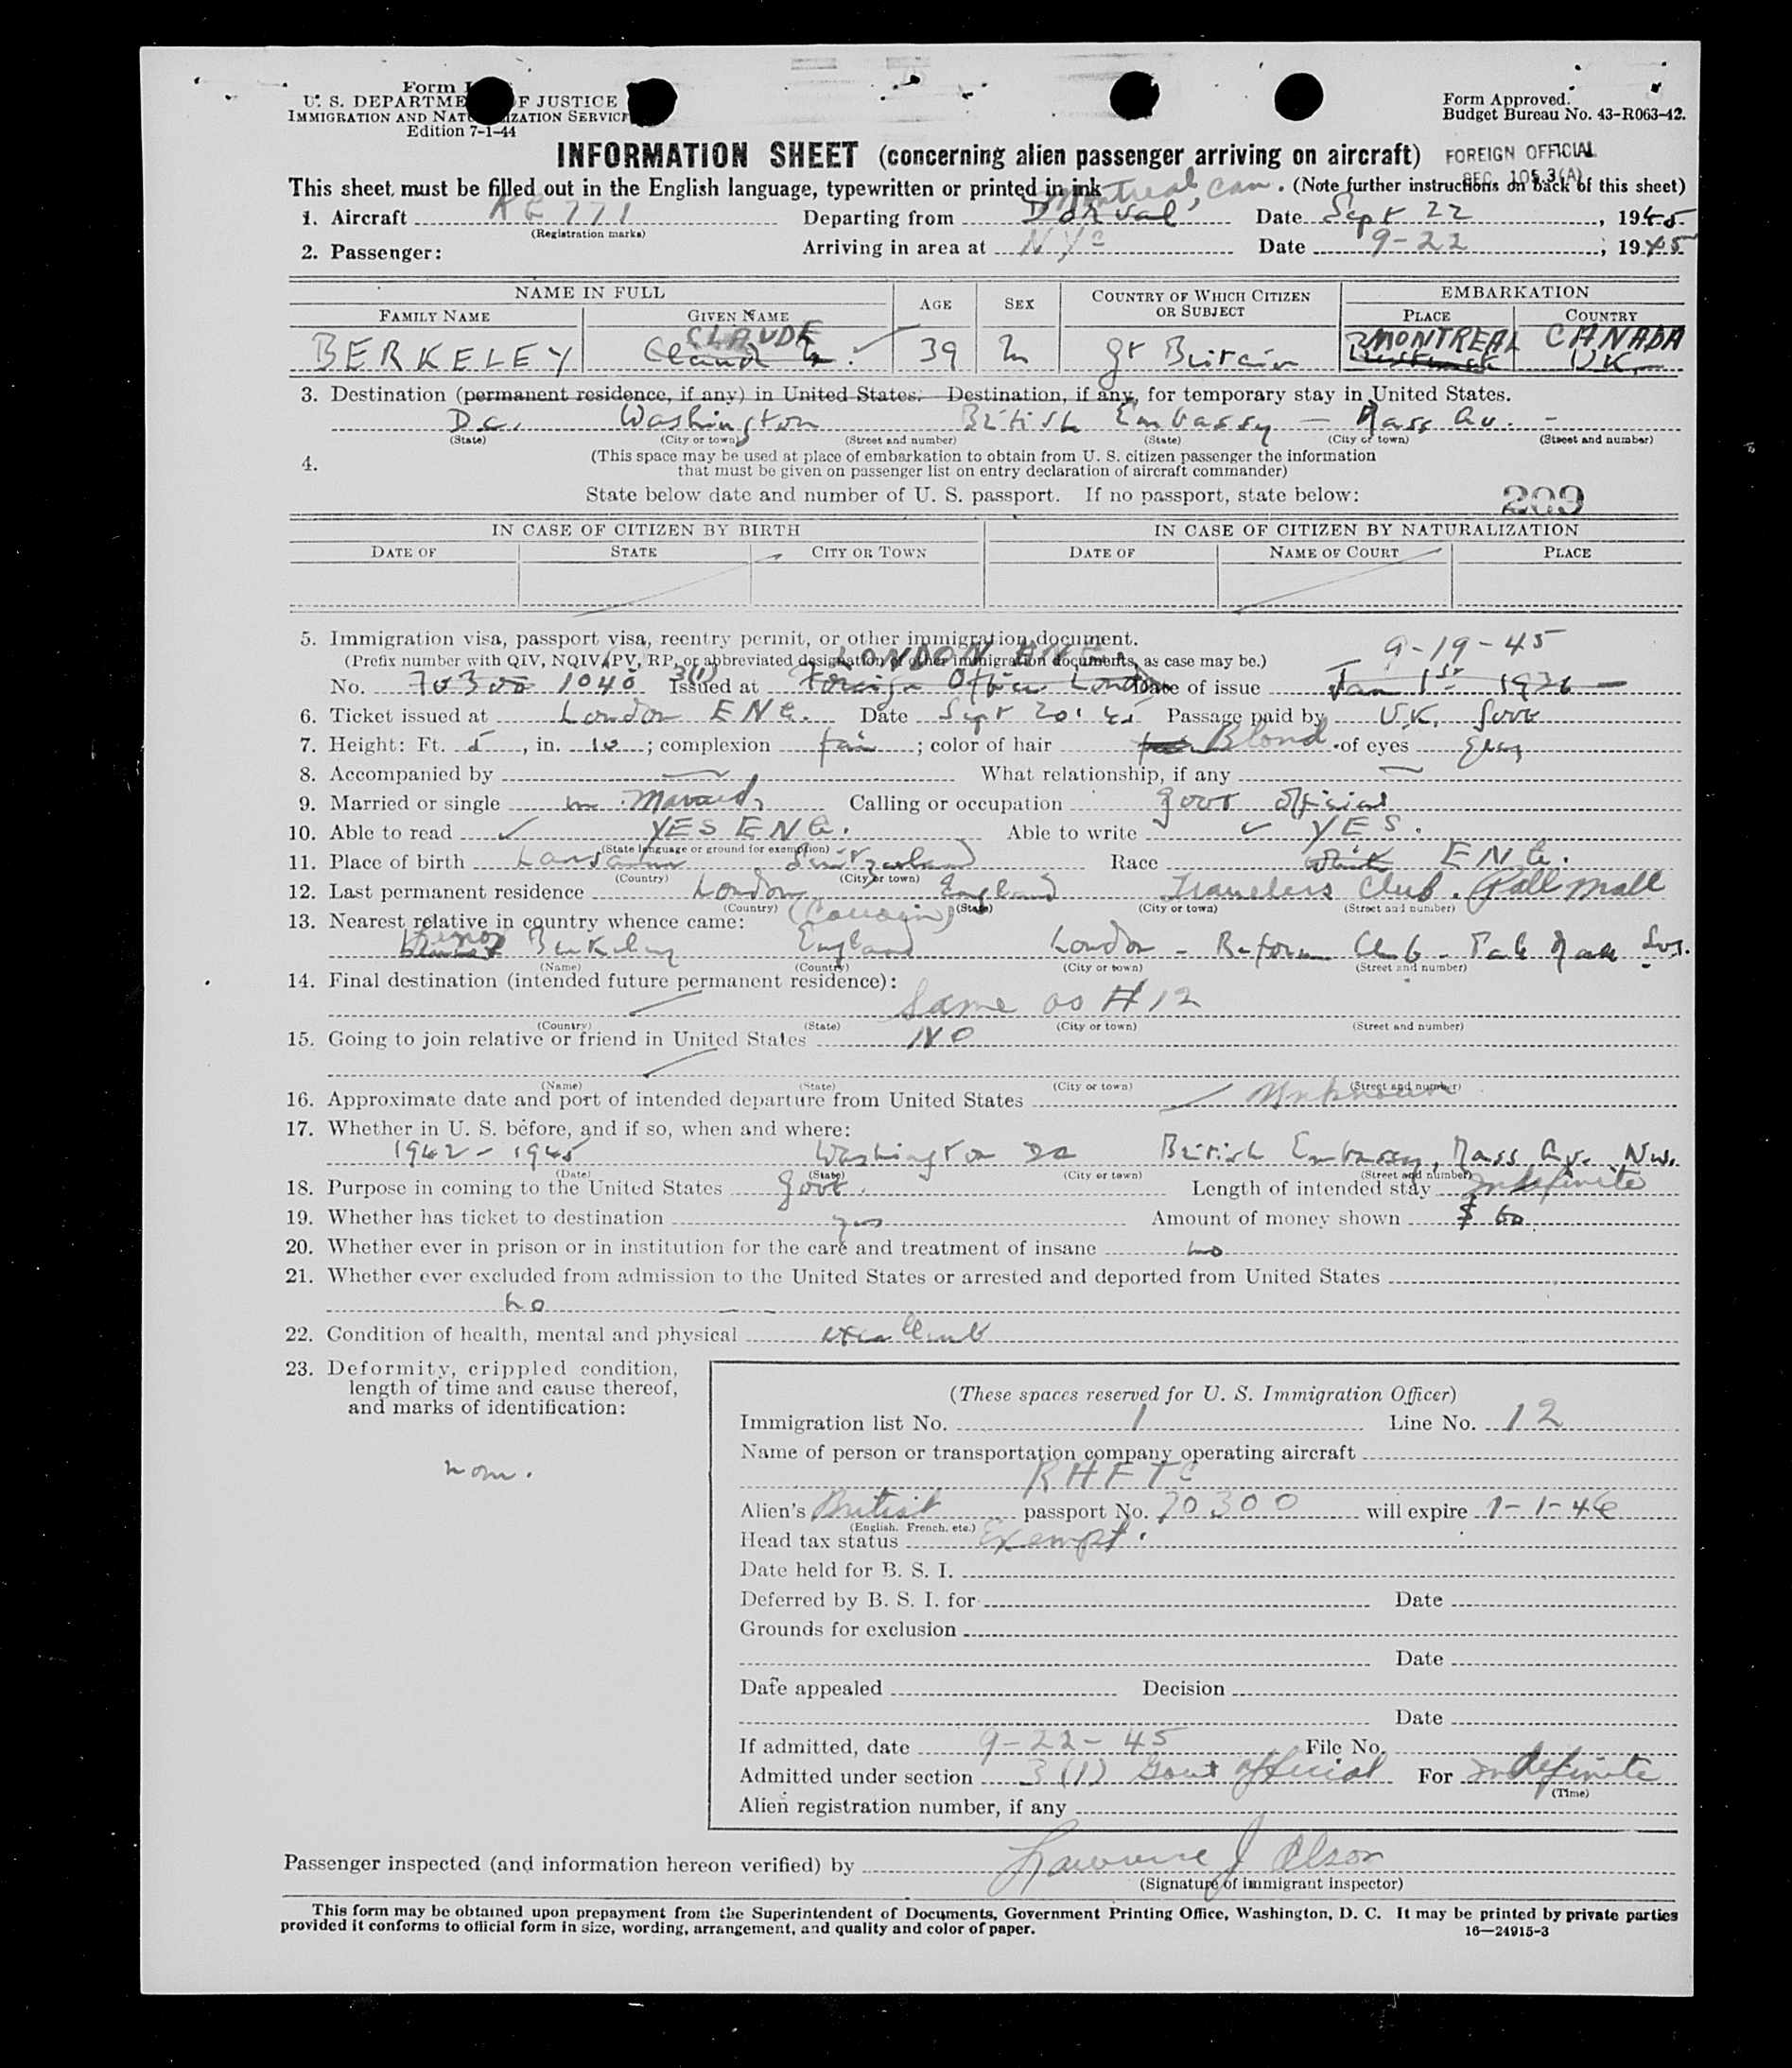 Form I
U. S. DEPARTME F JUSTICE
IMMIGRATION AND NAT IZATION SERVICE
Edition 7-1-44
Form Approved.
Budget Bureau No. 43-R063-42.
INFORMATION SHEET (concerning alien passenger arriving on aircraft)
FOREIGN OFFICIAL
SEC. 105.3(A)
This sheet must be filled out in the English language, typewritten or printed in ink. (Note further instructions on back of this sheet)
Montreal, Can.
1. Aircraft 771 Departing from Dorval Date Sept 22, 1945
(Registration marks)
2. Passenger: Arriving in area at NYC Date 9-22, 1945
NAME IN FULL AGE SEX COUNTRY OF WHICH CITIZEN OR SUBJECT EMBARKATION
FAMILY NAME GIVEN NAME PLACE COUNTRY
CLAUDE MONTREAL CANADA
BERKELEY Claud 39 m Gt Britain UK
3. Destination (permanent residence, if any) in United States. Destination, if any, for temporary stay in United States.
D.C. Washington British Embassy - Mass Av. -
(State) (City or town) (Street and number) (State) (City or town) (Street and number)
4. (This space may be used at place of embarkation to obtain from U. S. citizen passenger the information
that must be given on passenger list on entry declaration of aircraft commander)
State below date and number of U. S. passport. If no passport, state below:
209
IN CASE OF CITIZEN BY BIRTH IN CASE OF CITIZEN BY NATURALIZATION
DATE OF STATE CITY OR TOWN DATE OF NAME OF COURT PLACE
5. Immigration visa, passport visa, reentry permit, or other immigration document.
9-19-45
(Prefix number with QIV, NQIV, PV, RP, or abbreviated designation of other immigration documents, as case may be.)
LONDON ENG.
3(1)
No. 70300 1040 Issued at Foreign Office London Date of issue Jan 1st 1936
6. Ticket issued at London ENG. Date Sept 20. 45 Passage paid by U.K. Govt
7. Height: Ft. 5, in. 10; complexion fair; color of hair fair Blond of eyes grey
8. Accompanied by — What relationship, if any —
9. Married or single m. Married Calling or occupation govt official
10. Able to read ✓ YES ENG. Able to write ✓ YES.
(State language or ground for exemption)
11. Place of birth Lausanne Switzerland Race White ENG.
(Country) (City or town)
12. Last permanent residence London England Travelers Club. Pall Mall
(Country) (State) (City or town) (Street and number)
13. Nearest relative in country whence came:
(Cousin)
Berkeley England London - Reform Club - Pall Mall
(Name) (Country) (City or town) (Street and number)
14. Final destination (intended future permanent residence):
Same as #12
(Country) (State) (City or town) (Street and number)
15. Going to join relative or friend in United States NO
(Name) (State) (City or town) (Street and number)
16. Approximate date and port of intended departure from United States Unknown
17. Whether in U. S. before, and if so, when and where:
1942 - 1945 Washington DC British Embassy, Mass Av. N.W.
(Date) (State) (City or town) (Street and number)
18. Purpose in coming to the United States Govt. Length of intended stay Indefinite
19. Whether has ticket to destination yes Amount of money shown $ 60
20. Whether ever in prison or in institution for the care and treatment of insane no
21. Whether ever excluded from admission to the United States or arrested and deported from United States
no
22. Condition of health, mental and physical excellent
23. Deformity, crippled condition,
length of time and cause thereof,
and marks of identification:
none.
(These spaces reserved for U. S. Immigration Officer)
Immigration list No. 1 Line No. 12
Name of person or transportation company operating aircraft
RAFTC
Alien's British passport No. 70300 will expire 1-1-46
(English, French, etc.)
Head tax status Exempt.
Date held for B. S. I.
Deferred by B. S. I. for Date
Grounds for exclusion
Date
Date appealed Decision
Date
If admitted, date 9-22-45 File No.
Admitted under section 3 (1) Govt official For Indefinite
(Time)
Alien registration number, if any
Passenger inspected (and information hereon verified) by Lawrence J Olson
(Signature of immigrant inspector)
This form may be obtained upon prepayment from the Superintendent of Documents, Government Printing Office, Washington, D. C. It may be printed by private parties
provided it conforms to official form in size, wording, arrangement, and quality and color of paper. 16—24915-3